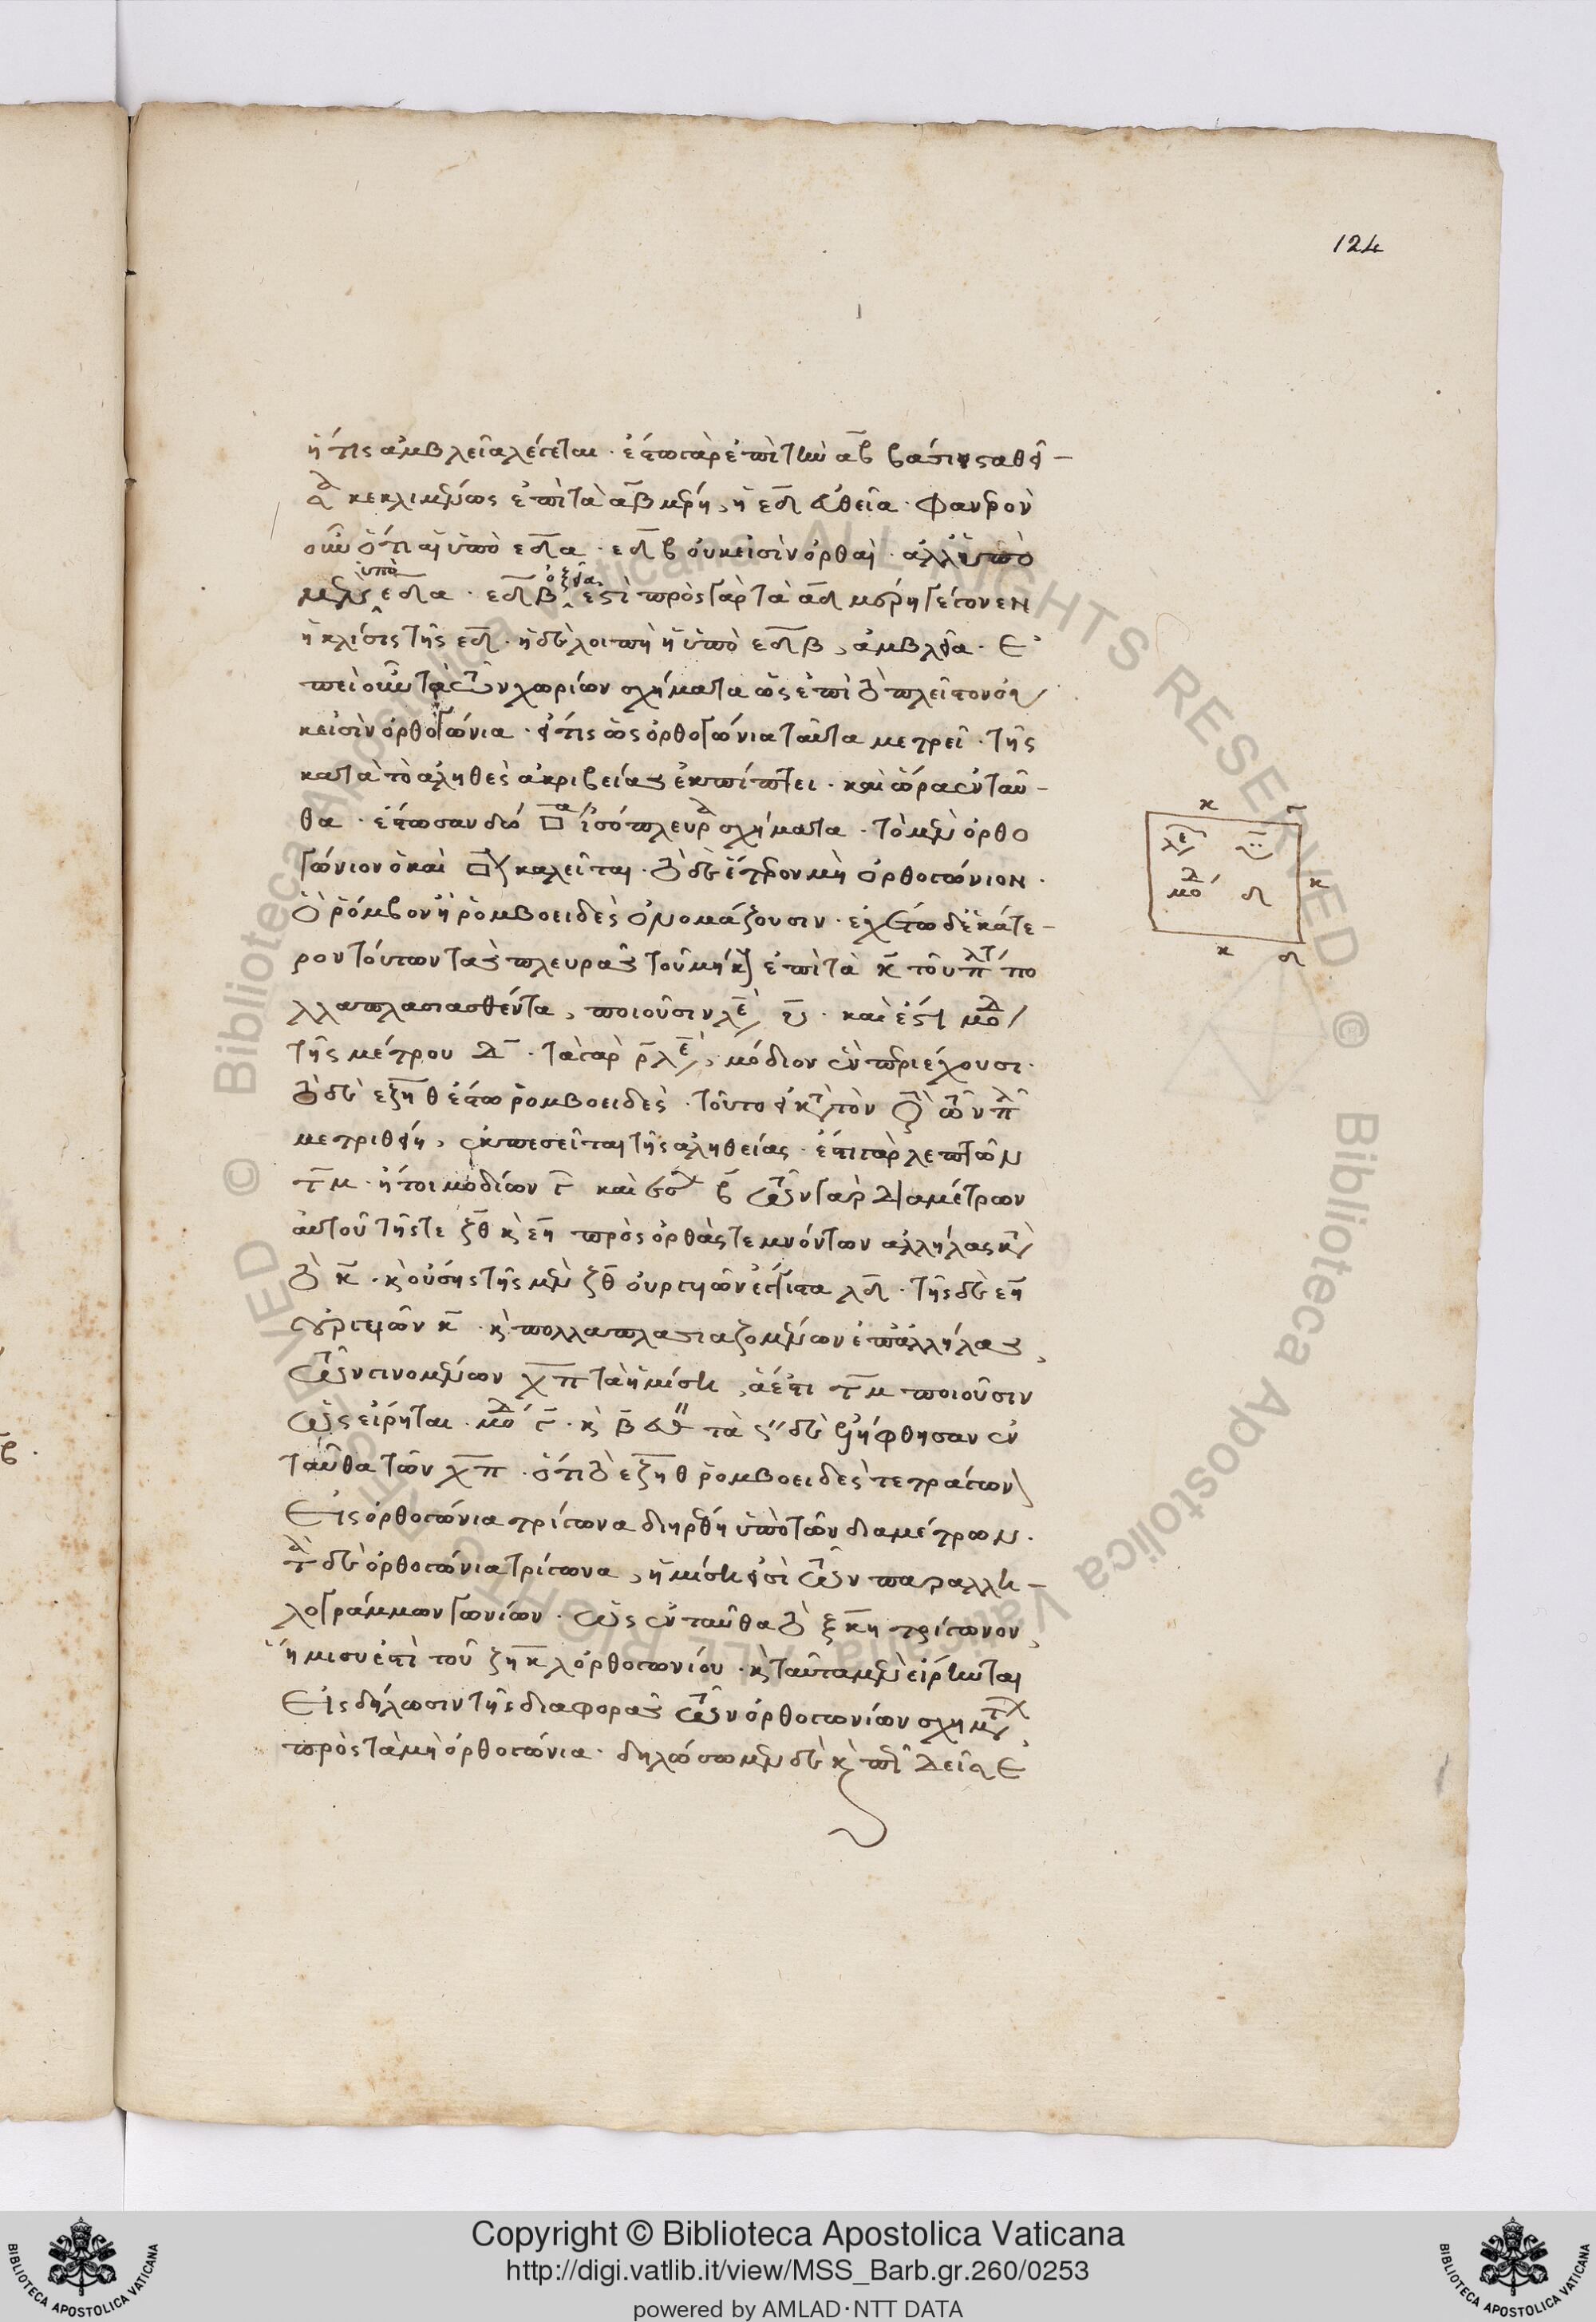 124
ἥτις ἀμβλεῖα λέγεται · ἔστω γὰρ ἐπὶ τὴν αβ βάσιν σταθεῖ–
σα κεκλιμένως ἐπὶ τὰ αβ μέρη, ἡ εδ εὐθεῖα · φανερὸν
οὖν ὅτι αἱ ὑπὸ εδα · εδβ οὐκ εἰσὶν ὀρθαὶ · ἀλλ' ἡ ὑπὸ
μὲν ὑπὸ εδα · εδβ ὀξεῖα ἐστὶ πρὸς γὰρ τὰ αδ μέρη γέγονεν
ἡ κλίσις τῆς εδ · ἡ δὲ λοιπὴ ἡ ὑπὸ εδβ, ἀμβλεῖα · ἐ
πεὶ οὖν τὰ τῶν χωρίων σχήματα ὡς ἐπὶ τὸ πλεῖστον οὐ
κ εἰσὶν ὀρθογώνια · εἴ τις ὡς ὀρθογώνια ταῦτα μετρεῖ · τῆς
κατὰ τὸ ἀληθὲς ἀκριβείας ἐκπίπτει · καὶ ὅρα ἐνταῦ–
θα · ἔστωσαν δύο □α ἰσόπλευρα σχήματα · τὸ μὲν ὀρθο
γώνιον ὃ καὶ □ καλεῖται · τὸ δὲ ἕτερον μὴ ὀρθογώνιον ·
ὃ ῥόμβον ἢ ῥομβοειδὲς ὀνομάζουσιν · ἐχέτω δ' ἑκάτε–
ρον τούτων τὰς πλευρὰς τοῦ μήκους ἐπὶ τὰ κ τοῦ πλάτους πο
λλαπλασιασθέντα, ποιοῦσιν λε υ · καὶ ἔστι μοδ
γῆς μέτρου δ · τὰ γὰρ ρ λε, μόδιον ἓν περιέχουσι ·
τὸ δὲ εζηθ ἔστω ῥομβοειδὲς · τοῦτο εἰ κατὰ τὸν
μετρηθείη, ἐκπεσεῖται τῆς ἀληθείας · ἔστι γὰρ λεπτῶν
τμ · ἤτοι μοδίων γ καὶ β τῶν γὰρ διαμέτρων
αὐτοῦ τῆς τε ζθ κ(αὶ) εη πρὸς ὀρθὰς τεμνόντων ἀλλήλας κατὰ
τὸ κ · κ(αὶ) οὔσης τῆς μὲν ζθ οὐργιῶν ἔγγιστα λδ · τῆς δὲ εη
οὐργιῶν κ · κ(αὶ) πολλαπλασιαζομένων ἐπ' ἀλλήλας,
τῶν γινομένων χπ τὰ ἡμίση, ἅ ἐστι τμ ποιοῦσιν
ὡς εἴρηται · μοδ γ · κ(αὶ) β τὰ ς'' δὲ ἐλήφθησαν ἐν
ταῦθα τῶν χπ · ὅτι τὸ εζηθ ῥομβοειδὲς τετράγωνον
εἰς ὀρθογώνια τρίγωνα διῃρέθη ὑπὸ τῶν διαμέτρων ·
τὰ δὲ ὀρθογώνια τρίγωνα, ἡμίση εἰσὶ τῶν παραλλη–
λογράμμων γωνίων · ὡς ἐνταῦθα τὸ ξκη τρίγωνον,
ἥμισυ ἐστὶ τοῦ ζηκλ ὀρθογωνίου · κ(αὶ) ταῦτα μὲν εἴρηται
εἰς δήλωσιν τῆς διαφορᾶς τῶν ὀρθογωνίων σχημάτων
πρὸς τὰ μὴ ὀρθογώνια · δηλώσωμεν δὲ κ(αὶ)
κ γ
λε υ
μοδ δ
κ
κ δ
Copyright © Biblioteca Apostolica Vaticana
http://digi.vatlib.it/view/MSS_Barb.gr.260/0253
powered by AMLAD·NTT DATA
BIBLIOTECA APOSTOLICA VATICANA
BIBLIOTECA APOSTOLICA VATICANA
© Biblioteca Apostolica Vaticana ALL RIGHTS RESERVED © Biblioteca Apostolica Vaticana ALL RIGHTS RESERVED